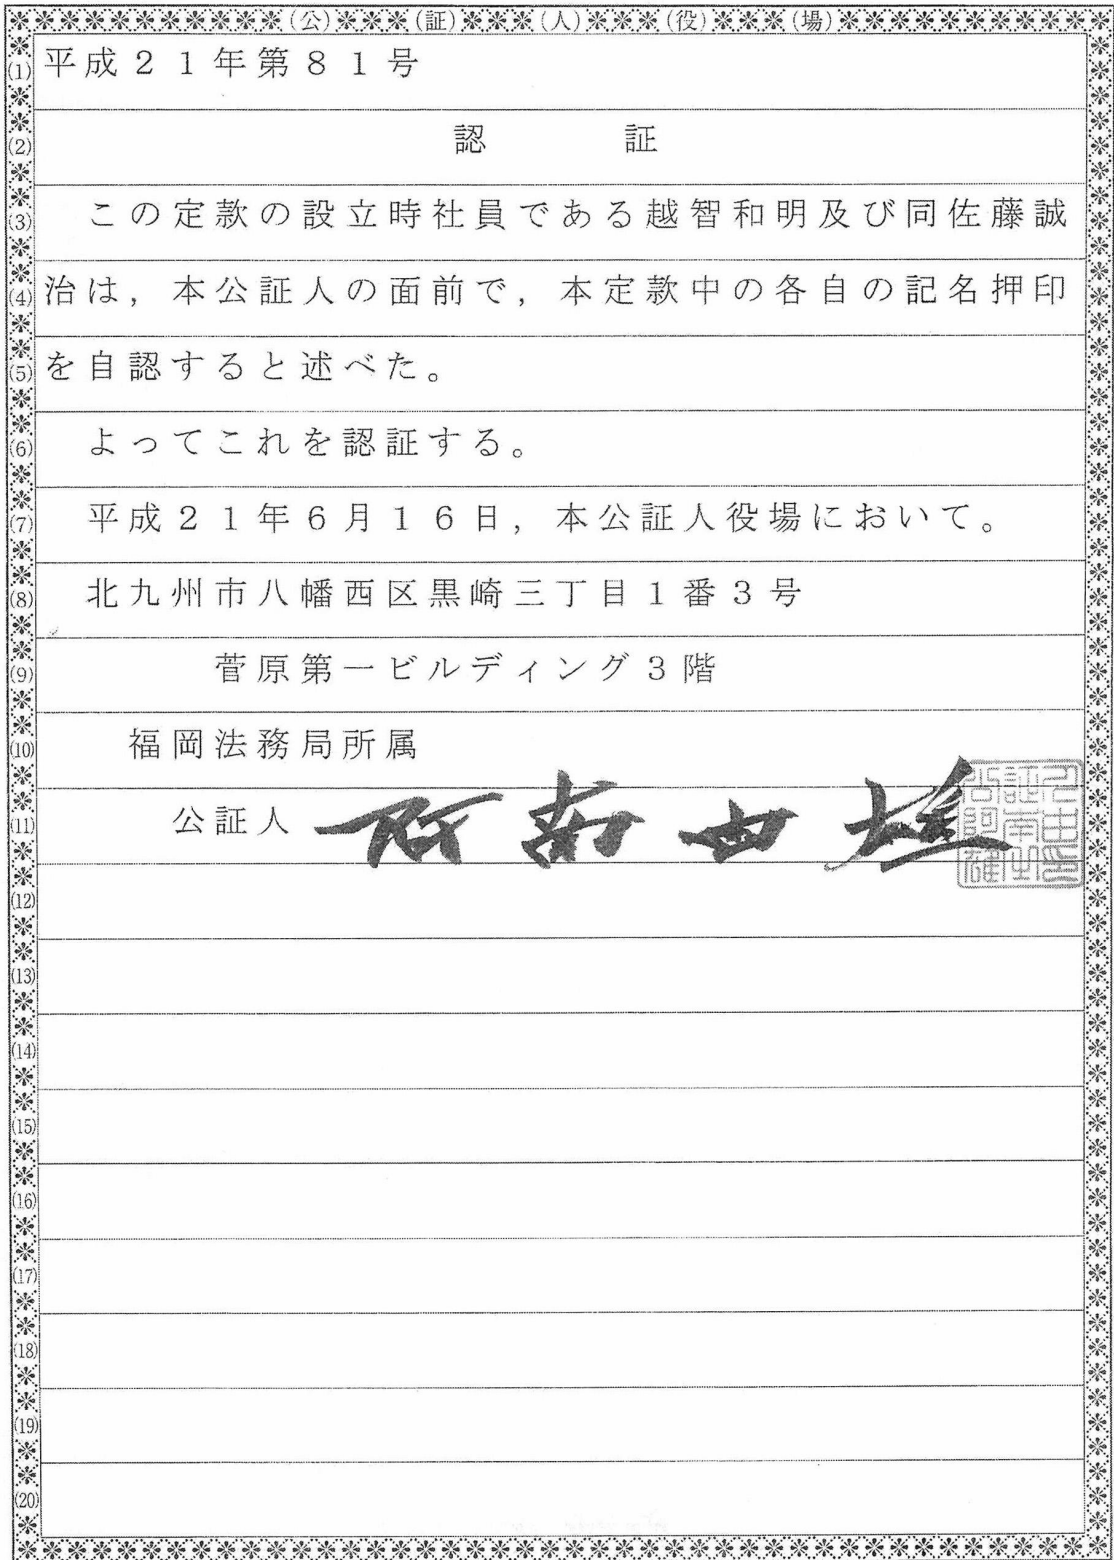 (公)(証)(人)(役)(場)
(1) 平成21年第81号
(2) 認 証
(3) この定款の設立時社員である越智和明及び同佐藤誠
(4) 治は，本公証人の面前で，本定款中の各自の記名押印
(5) を自認すると述べた。
(6) よってこれを認証する。
(7) 平成21年6月16日，本公証人役場において。
(8) 北九州市八幡西区黒崎三丁目1番3号
(9) 菅原第一ビルディング3階
(10) 福岡法務局所属
(11) 公証人 阿南
(12)
(13)
(14)
(15)
(16)
(17)
(18)
(19)
(20)